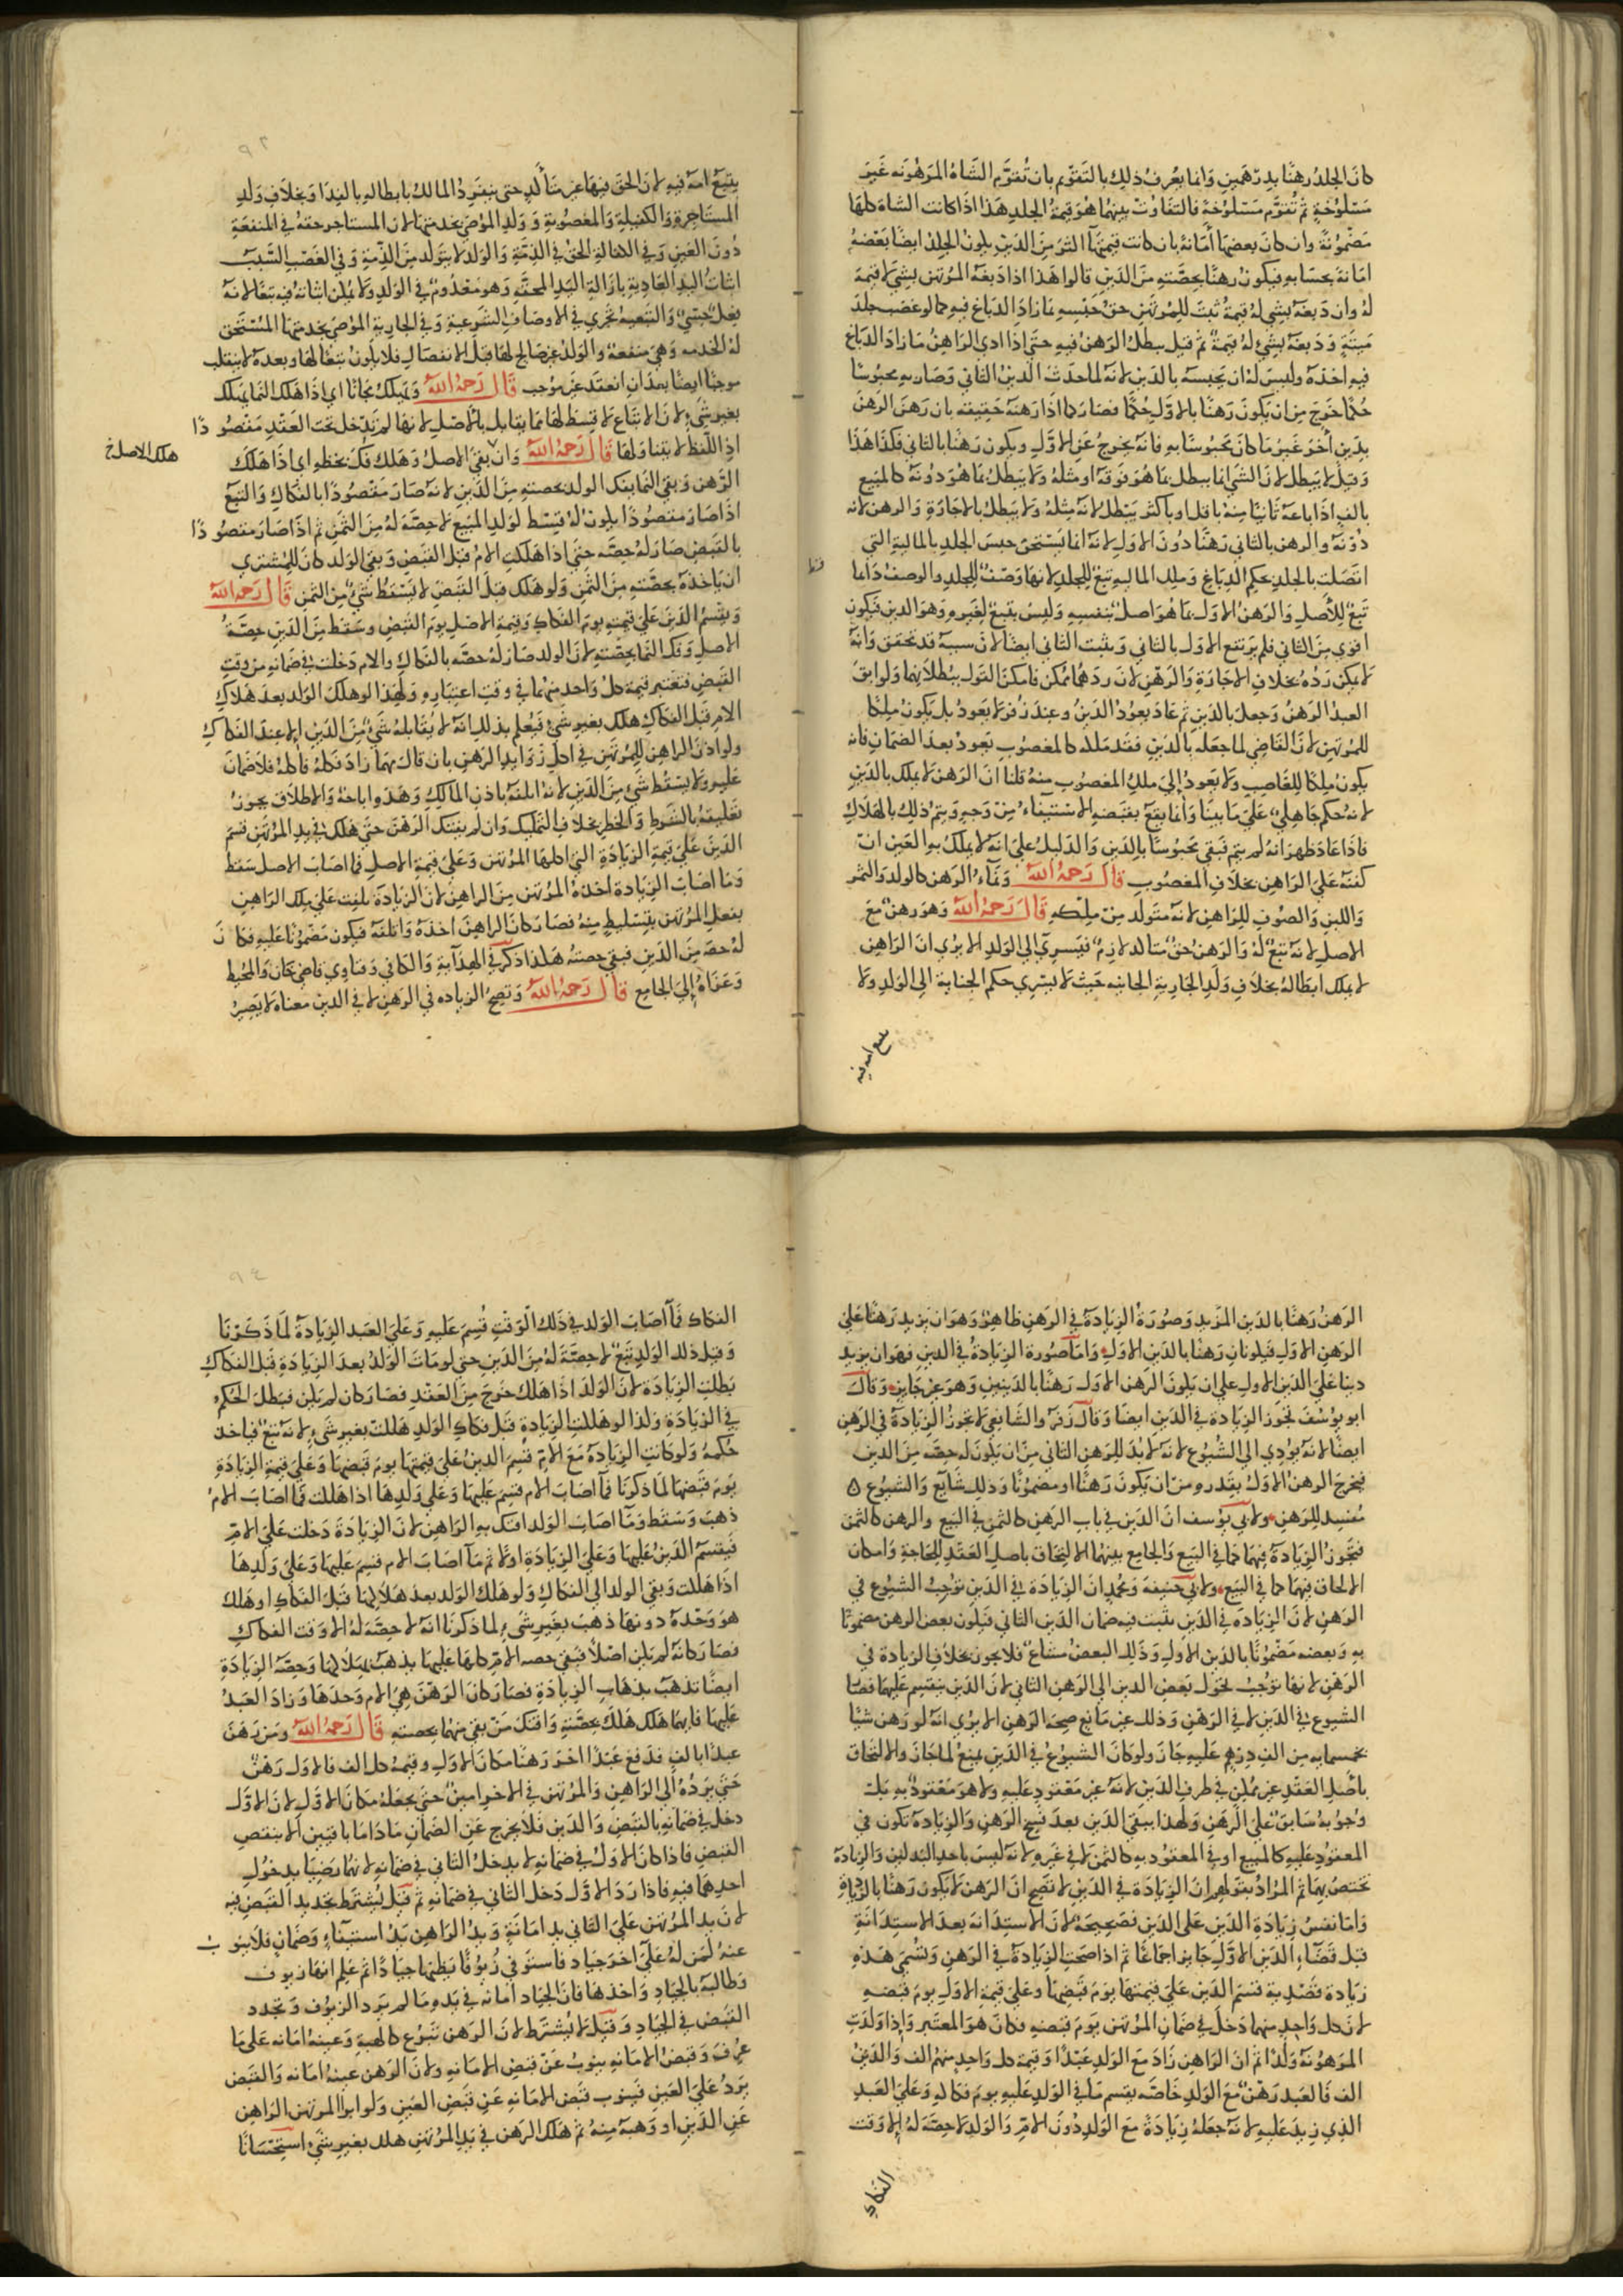 كان الجلد رهنا بدرهمين وانما يعرف ذلك بالتقوم بان تقوم الشاة المرهونه غير
مسلوخة ثم تقوم مسلوخة فالتفاوت بينهما هو قيمة الجلد هذا اذا كانت الشاة كلها
مضمونة وان كان بعضها امانة بان كانت قيمتها اكثر من الدين يكون الجلد ايضا بعضه
امانة بحسابه فيكون رهنا بحصته من الدين قالوا هذا اذا دبغه المرتهن بشي لا قيمة
له وان دبغه بشي له قيمة ثبت للمرتهن حق حبسه بما زاد الدباغ فيه كما لو غصب جلد
ميتة ودبغه بشئ له قيمة ثم قيل يبطل الرهن فيه حتى اذا ادى الراهن ما زاد الدباغ
فيه اخذه وليس له ان يحبسه بالدين لانه لما حدث الدين الثاني وصار به محبوسا
حكما خرج من ان يكون رهنا بالاول حكما فصار كما اذا رهنه حقيقة بان رهن الرهن
بدين اخر غير ما كان محبوسا به فانه يخرج عن الاول ويكون رهنا بالثاني فكذا هذا
وقيل لا يبطل لان الشي انما يبطل بما هو فوقه او مثله ولا يبطل بما هو دونه كالمبيع
بالف اذا باعه ثانيا منه باقل او باكثر يبطل لانه مثله ولا يبطل بالاجارة والرهن لانه
دونه والرهن بالثاني رهنا دون الاول لانه انما يستحق حبس الجلد بالمالية التي
اتصلت بالجلد بحكم الدباغ وتلك المالية تبع للجلد لانها وصف للجلد والوصف دائما
تبع للأصل والرهن الاول بما هو اصل بنفسه وليس بتبع لغيره وهو الدين فيكون
اقوى من الثاني فلم يرتفع الاول بالثاني ويثبت الثاني ايضا لان سببه قد تحقق وانه
لا يمكن رده بخلاف الاجارة والرهن لان ردهما ممكن فامكن القول ببطلانهما ولو ابق
العبد الرهن وجعل بالدين ثم عاد يعود الدين وعند زفر لا يعود بل يكون ملكا
للمرتهن لان القاضي لما جعله بالدين فقد ملكه كالمغصوب يعود بعد الضمان فانه
يكون ملكا للغاصب ولا يعود الي ملك المغصوب منه قلنا ان الرهن لا يملك بالدين
لانه حكم جاهلي على ما بينا وانما يقع بقبضه الاستيفاء من وجه ويتم ذلك بالهلاك
فاذا عاد ظهر انه لم يتم فبقي محبوسا بالدين والدليل على انه لا يملك به العين ان
كفنه على الراهن بخلاف المغصوب قال رحمه الله ونماء الرهن كالولد والثمر
واللبن والصوف للراهن لانه متولد من ملكه قال رحمه الله وهو رهن مع
الاصل لانه تبع له والرهن حق متاكد لازم فيسري الى الولد الا يرى ان الراهن
لا يملك ابطاله بخلاف ولد الجارية الجانية حيث لا يسري حكم الجناية الى الولد ولا
يتبع امه فيه
يتبع امه فيه لان الحق فيها غير متاكد حتى ينفرد المالك بابطاله بالفدا وبخلاف ولد
المستاجرة والكفيلة والمغصوبة وولد الموصى بخدمتها لان المستاجر حقه في المنفعة
دون العين وفي الكفالة الحق في الذمة والولد لا يتولد من الذمة وفي الغصب السبب
اثبات اليد العادية بازالة اليد المحقة وهو معدوم في الولد ولا يمكن اثباته فيه تبعا لانه
فعل حسي والتبعية تجري في الاوصاف الشرعية وفي الجارية الموصى بخدمتها المستحق
له الخدمة وهي منفعة والولد غير صالح لها قبل الانفصال فلا يكون تبعا لها وبعده لا ينقلب
موجبا ايضا بعد ان انعقد غير موجب قال رحمه الله ويهلك مجانا اي اذا هلك النما يهلك
بغير شئ لان الاتباع لا قسط لها مما يقابل بالأصل لانها لم تدخل تحت العقد مقصودا
اذ اللفظ لا يتناولها قال رحمه الله وان بقي الاصل وهلك فك بحظه اي اذا هلك
هلك الاصل خ
الرهن وبقي النما يفك الولد بحصته من الدين لانه صار مقصودا بالفكاك والتبع
اذا صار مقصودا يكون له قسط لولد المبيع لا حصة له من الثمن ثم اذا صار مقصودا
بالقبض صار له حصة حتى اذا هلكت الام قبل القبض وبقى الولد كان للمشتري
ان ياخذه بحصته من الثمن ولو هلك قبل القبض لا يسقط شئ من الثمن قال رحمه الله
ويقسم الدين على قيمته يوم الفكاك وقيمة الاصل يوم القبض وسقط من الدين حصة
الاصل وفك النما بحصته لان الولد صار له حصة بالفكاك والام دخلت في ضمانه من وقت
القبض فتعتبر قيمة كل واحد منهما في وقت اعتباره ولهذا لو هلك الولد بعد هلاك
الام قبل الفكاك هلك بغير شئ فيعلم بذلك انه لا يقابله شئ من الدين الا عند الفكاك
ولو اذن الراهن للمرتهن في اكل زوايد الرهن بان قال مهما زاد فكله فاكله فلا ضمان
عليه ولا يسقط شئ من الدين لانه اتلفه باذن المالك وهذه اباحة والاطلاق يجوز
تعليقه بالشرط والخطر بخلاف التمليك وان لم يفتك الرهن حتى هلك في يد المرتهن قسم
الدين على قيمة الزيادة التي اكلها المرتهن وعلى قيمة الاصل فما اصاب الاصل سقط
وما اصاب الزيادة اخذه المرتهن من الراهن لان الزيادة تلفت على ملك الراهن
بفعل المرتهن بتسليط منه فصار كان الراهن اخذه واتلفه فيكون مضمونا عليه فكان
له حصة من الدين فبقي حصته هكذا ذكر في الهداية والكافي وفتاوي قاضي خان والمحيط
وعزاه الى الجامع قال رحمه الله وتصح الزيادة في الرهن لا في الدين معناه لا يصير
الرهن رهنا بالدين المزيد وصورة الزيادة في الرهن ظاهرة وهو ان يزيد رهنا على
الرهن الاول فيكونان رهنا بالدين الاول واما صورة الزيادة في الدين فهو ان يزيد
دينا على الدين الاول على ان يكون الرهن الاول رهنا بالدينين وهو غير جايز وقال
ابو يوسف تجوز الزيادة في الدين ايضا وقال زفر والشافعي لا تجوز الزيادة في الرهن
ايضا لانه يؤدي الى الشيوع لانه لا بد للرهن الثاني من ان يكون له حصة من الدين
فيخرج الرهن الاول بقدره من ان يكون رهنا او مضمونا وذلك شايع والشيوع
مفسد للرهن ولابي يوسف ان الدين في باب الرهن كالثمن في البيع والرهن كالثمن
فتجوز الزيادة فيهما كما في البيع والجامع بينهما الالتحاق باصل العقد للحاجة وامكان
الالحاق فيهما كما في البيع ولابي حنيفة ومحمد ان الزيادة في الدين توجب الشيوع في
الرهن لان الزيادة في الدين يثبت فيه ضمان الدين الثاني فيكون بعض الرهن مضمونا
به وبعضه مضمونا بالدين الاول وذلك البعض مشاع فلا يجوز بخلاف الزيادة في
الرهن لانها توجب تحول بعض الدين الى الرهن الثاني لان الدين ينقسم عليهما فصار
الشيوع في الدين لا في الرهن وذلك غير مانع صحة الرهن الا يرى انه لو رهن شيا
بخمسمايه من الف درهم عليه جاز ولو كان الشيوع في الدين يمنع لما جاز والالتحاق
باصل العقد غير ممكن في طرف الدين لانه غير معقود عليه ولا هو معقود به بل
وجوبه سابق على الرهن ولهذا يبقى الدين بعد فسخ الرهن والزيادة تكون في
المعقود عليه كالمبيع او في المعقود به كالثمن لا في غيره لانه ليس باحد البدلين والزيادة
تختص بهما ثم المراد بقولهم ان الزيادة في الدين لا تصح ان الرهن لا يكون رهنا بالزيادة
واما نفس زيادة الدين على الدين فصحيحة لان الاستدانة بعد الاستدانة
قبل قضاء الدين الاول جايز اجماعا ثم اذا صحت الزيادة في الرهن وتسمى هذه
زيادة قصدية قسم الدين على قيمتها يوم قبضها وعلى قيمة الاول يوم قبضه
لان كل واحد منهما دخل في ضمان المرتهن يوم قبضه فكان هو المعتبر واذا ولدت
المرهونة ولدا ثم ان الراهن زاد مع الولد عبدا وقيمة كل واحد منهم الف والدين
الف فالعبد رهن مع الولد خاصة يقسم ما في الولد عليه يوم فكاكه وعلى العبد
الذي زيد عليه لانه جعله زيادة مع الولد دون الام والولد لا حصة له الا وقت
الفكاك
الفكاك فما اصاب الولد في ذلك الوقت قسم عليه وعلى العبد الزيادة لما ذكرنا
وقبل ذلك الولد تبع لا حصة له من الدين حتى لو مات الولد بعد الزيادة قبل الفكاك
بطلت الزيادة لان الولد اذا هلك خرج من العقد فصار كان لم يكن فبطل الحكم
في الزيادة ولذا لو هلكت الزيادة قبل فكاك الولد هلكت بغير شئ لانه تبع فياخذ
حكمه ولو كانت الزيادة مع الام قسم الدين على قيمتها يوم قبضها وعلى قيمة الزيادة
يوم قبضها لما ذكرنا فما اصاب الام قسم عليها وعلى ولدها اذا هلك فما اصاب الام
ذهب وسقط وما اصاب الولد افتك به الراهن لان الزيادة دخلت على الام
فيقسم الدين عليها وعلى الزيادة اولا ثم ما اصاب الام قسم عليها وعلى ولدها
اذا هلكت وبقي الولد الى الفكاك ولو هلك الولد بعد هلاكها قبل الفكاك او هلك
هو وحده دونها ذهب بغير شئ لما ذكرنا انه لا حصة له الا وقت الفكاك
فصار كانه لم يكن اصلا فبقي حصة الام كلها عليها يذهب بهلاكها وحصة الزيادة
ايضا تذهب بذهاب الزيادة فصار كان الرهن هي الام وحدها وزاد العبد
عليها فايهما هلك هلك بحصته وافتك من بقي منهما بحصته قال رحمه الله ومن رهن
عبدا بالف فدفع عبدا اخر رهنا مكان الاول وقيمة كل الف فالاول رهن
حتى يرده الى الراهن والمرتهن في الاخر امين حتى يجعله مكان الاول لان الاول
دخل في ضمانه بالقبض والدين فلا يخرج عن الضمان ما داما باقيين الا بنقض
القبض فاذا كان الاول في ضمانه لا يدخل الثاني في ضمانه لانهما رضيا بدخول
احدهما فيه فاذا رد الاول دخل الثاني في ضمانه ثم قيل يشترط تجديد القبض فيه
لان يد المرتهن على الثاني يد امانة ويد الراهن يد استيفاء وضمان فلا ينوب
عنه كمن له على آخر جياد فاستوفى زيوفا يظنها جيادا ثم علم انها زيوف
وطالبه بالجياد واخذها فان الجياد امانه في يده ما لم يرد الزيوف ويجدد
القبض في الجياد وقيل لا يشترط لان الرهن تبرع كالهبة وعينه امانه على ما
عرف وقبض الامانه ينوب عن قبض الامانه ولان الرهن عينه امانه والقبض
يرد على العين فينوب قبض الامانه عن قبض العين ولو ابرا المرتهن الراهن
عن الدين او وهبه منه ثم هلك الرهن في يد المرتهن هلك بغير شئ استحسانا